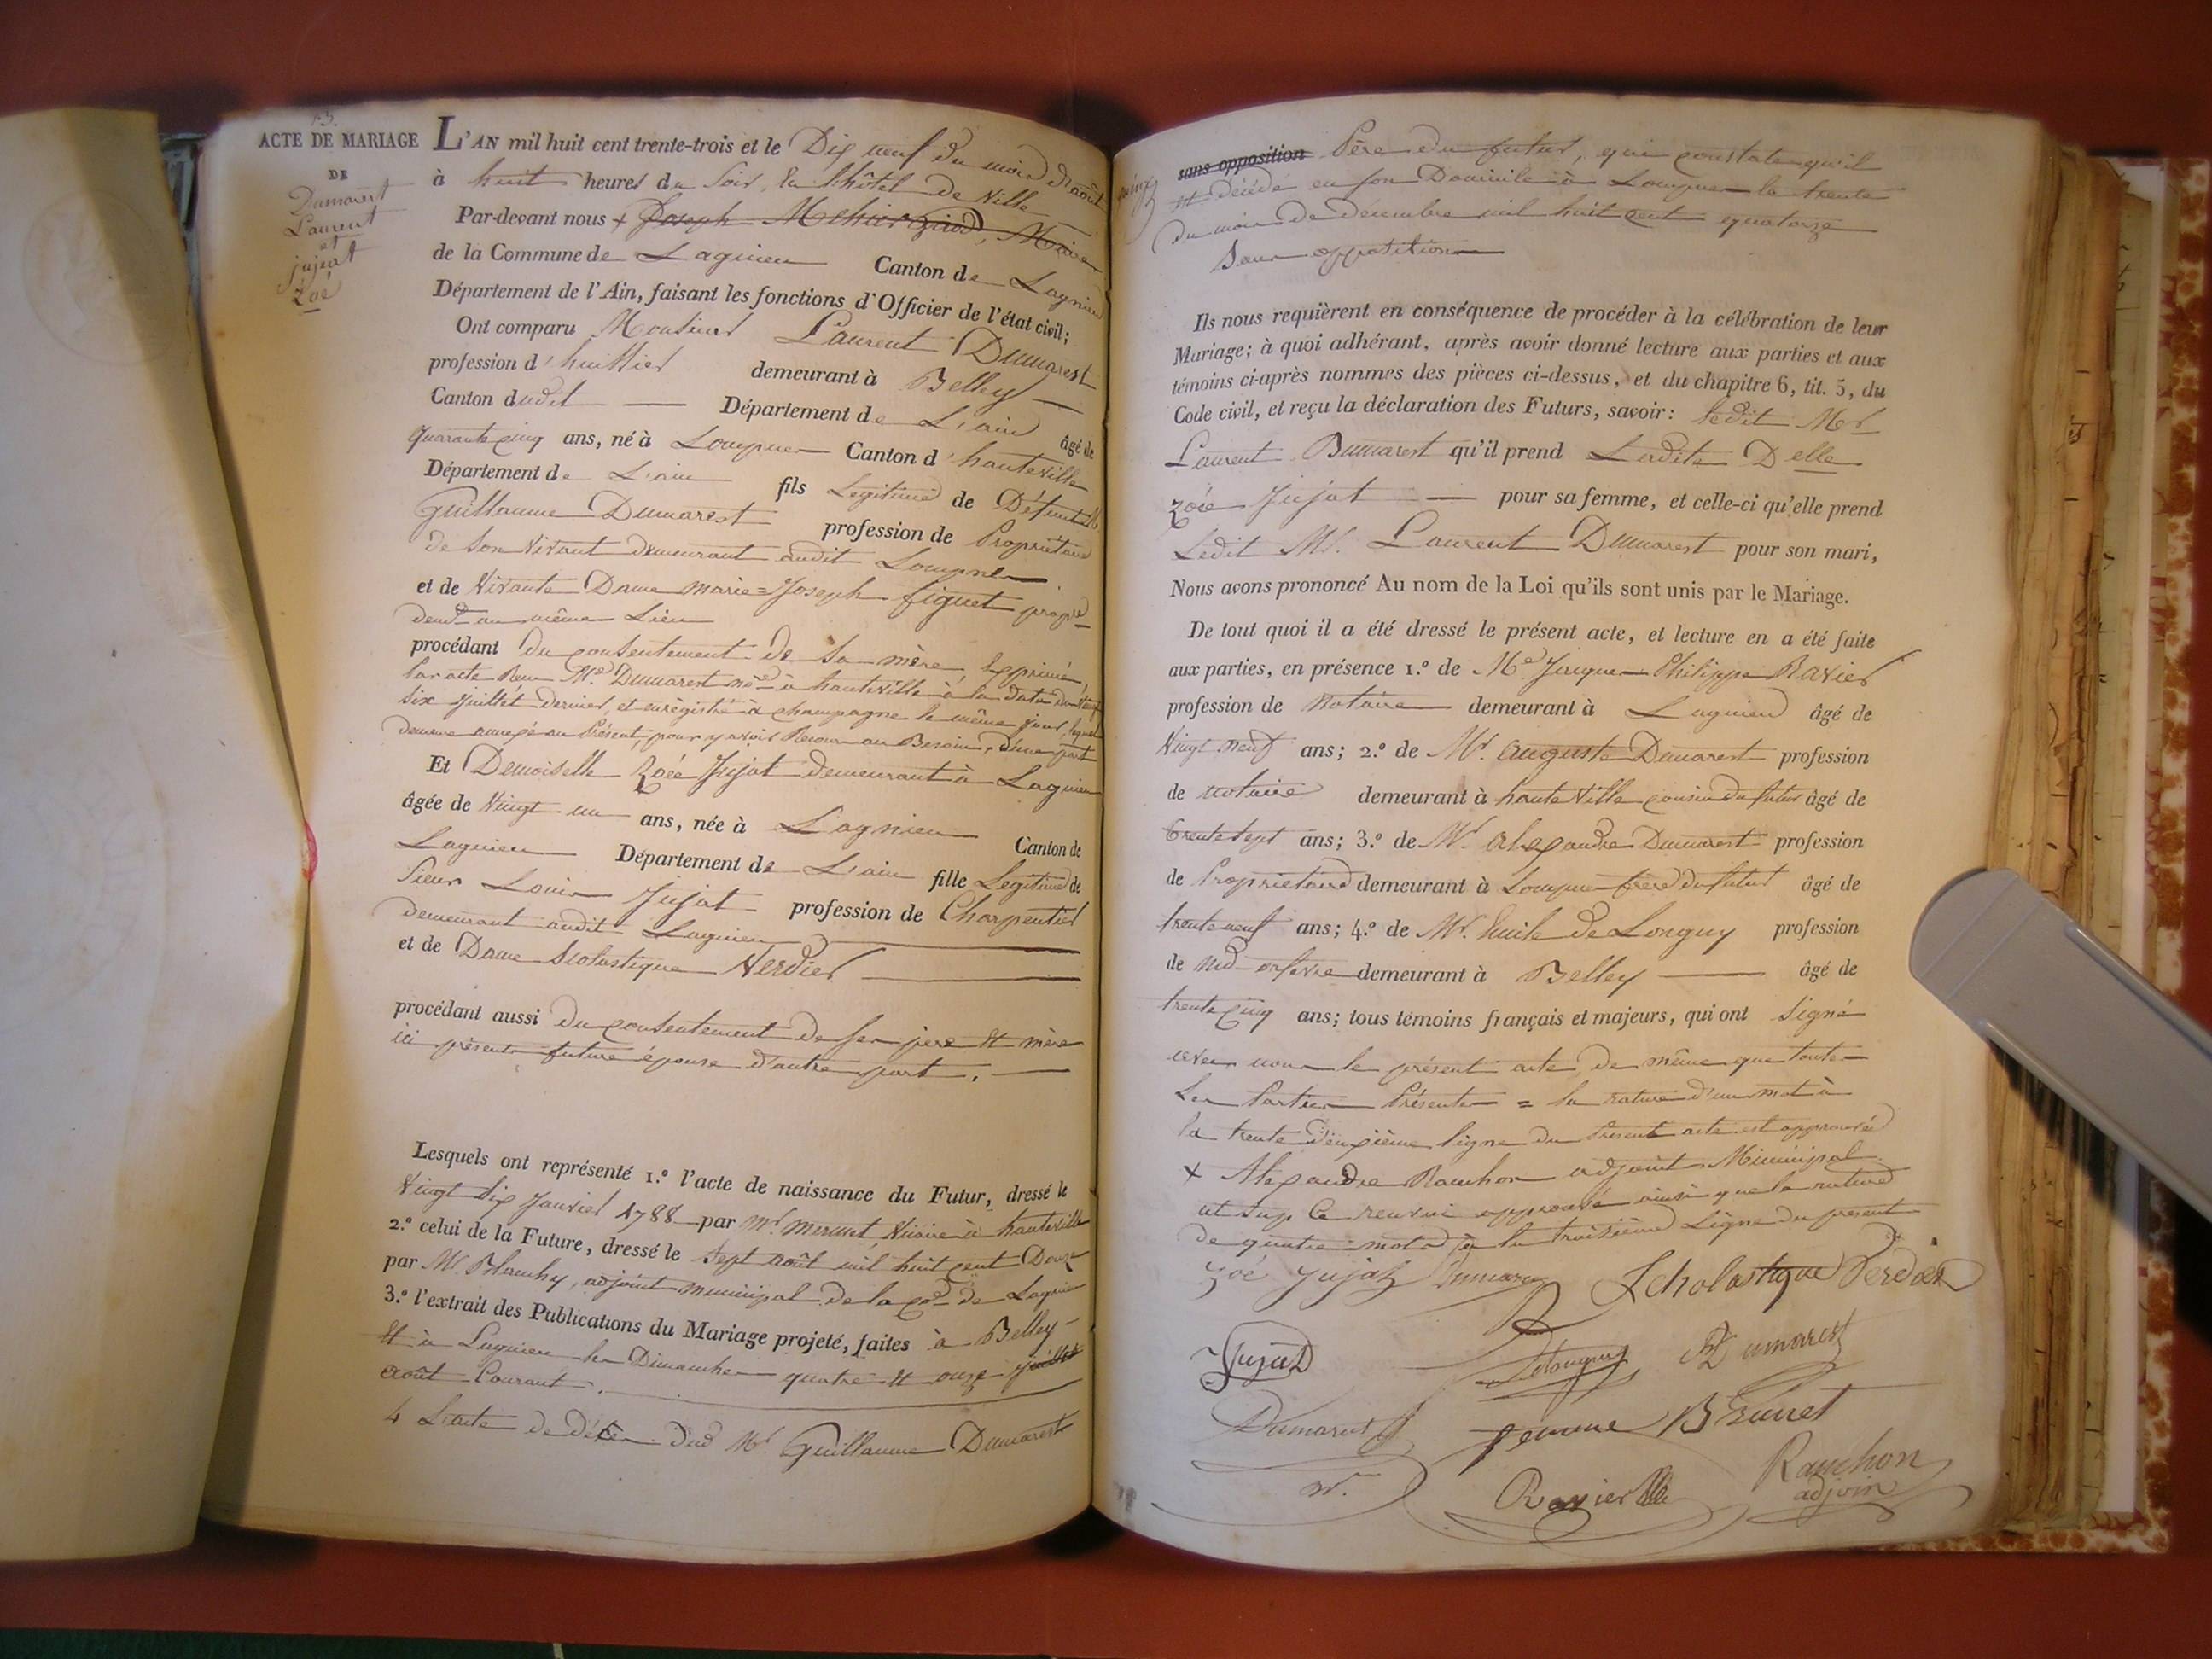 13.
ACTE DE MARIAGE
DE
Dumarest
Laurent
et
jujat
Zoé
L'AN mil huit cent trente-trois et le Dix neuf du mois d'août
à huit heures du Soir, En L'hôtel de Ville
Par-devant nous + Joseph Maire
de la Commune de Lagnieu Canton de Lagnieu
Département de l'Ain, faisant les fonctions d'Officier de l'état civil;
Ont comparu Monsieur Laurent Dumarest
profession d'huissier demeurant à Belley —
Canton dudit — Département de L'ain âgé de
quarante cinq ans, né à Lompnes Canton d'hauteville
Département de L'ain fils Légitime de Défunt Mr
Guillaume Dumarest profession de Propriétaire
de Son Vivant demeurant audit Lompnes
et de Vivante Dame marie=Joseph figuet propre
demt au même Lieu
procédant du consentement de Sa mère, Exprimé,
Par acte Reçu Me Dumarest nre à hauteville à la date du Vingt
Six Juillet dernier, et enregistré à champagne le même jour, lequel
demeure annexé au Présent, pour y avoir Recours au Besoin, d'une part
Et Demoiselle Zoée Jujat demeurant à Lagnieu
âgée de Vingt un ans, née à Lagnieu Canton de
Lagnieu Département de L'ain fille Légitime de
Sieur Louis Jujat profession de Charpentier
demeurant audit Lagnieu
et de Dame Scolastique Verdier
procédant aussi du consentement de ses père et mère
ici présents future épouse d'autre part. —
Lesquels ont représenté 1.º l'acte de naissance du Futur, dressé le
Vingt Six Janvier 1788 par mr Vicaire à hauteville
2.º celui de la Future, dressé le Sept août mil huit cent Douze
par Mr. Blanchy, adjoint municipal de la cne de Lagnieu
3.º l'extrait des Publications du Mariage projeté, faites à Belley
et à Lagnieu les Dimanches quatre et onze juillet
août Courant.
4 L'acte de décès dud Mr. Guillaume Dumarest
sans opposition Père du futur, qui constate qu'il
est décédé en son Domicile à Lompnes le trente
du mois de décembre mil huit cent quatorze
Sans opposition
Ils nous requièrent en conséquence de procéder à la célébration de leur
Mariage; à quoi adhérant, après avoir donné lecture aux parties et aux
témoins ci-après nommés des pièces ci-dessus, et du chapitre 6, tit. 5, du
Code civil, et reçu la déclaration des Futurs, savoir: ledit Mr
Laurent Dumarest qu'il prend Ladite Delle
zoée Jujat — pour sa femme, et celle-ci qu'elle prend
Ledit Mr. Laurent Dumarest pour son mari,
Nous avons prononcé Au nom de la Loi qu'ils sont unis par le Mariage.
De tout quoi il a été dressé le présent acte, et lecture en a été faite
aux parties, en présence 1.º de Me Jacques Philippe Ravier
profession de Notaire demeurant à Lagnieu âgé de
Vingt neuf ans; 2.º de Mr. auguste Dumarest profession
de notaire demeurant à hauteville cousin du futur âgé de
trente sept ans; 3.º de Mr. alexandre Dumarest profession
de Propriétaire demeurant à Lompnes frère du futur âgé de
trente neuf ans; 4.º de Mr. Emile de Longuy profession
de md orfèvre demeurant à Belley — âgé de
trente cinq ans; tous témoins français et majeurs, qui ont Signé
avec nous le présent acte, de même que toutes
Les Parties Présentes = la rature d'un mot à
la trente deuxième ligne du Présent acte est approuvée
+ Alexandre Ranchon adjoint Municipal
ut sup Ce renvoi approuvé ainsi que la rature
de quatre mots à la troisième Ligne du présent
Zoé Jujat Dumarest Scholastique Verdier
Jujat Delonguy Dumarest
Dumarest femme Brunet
nre. Ravier Ranchon
adjoin